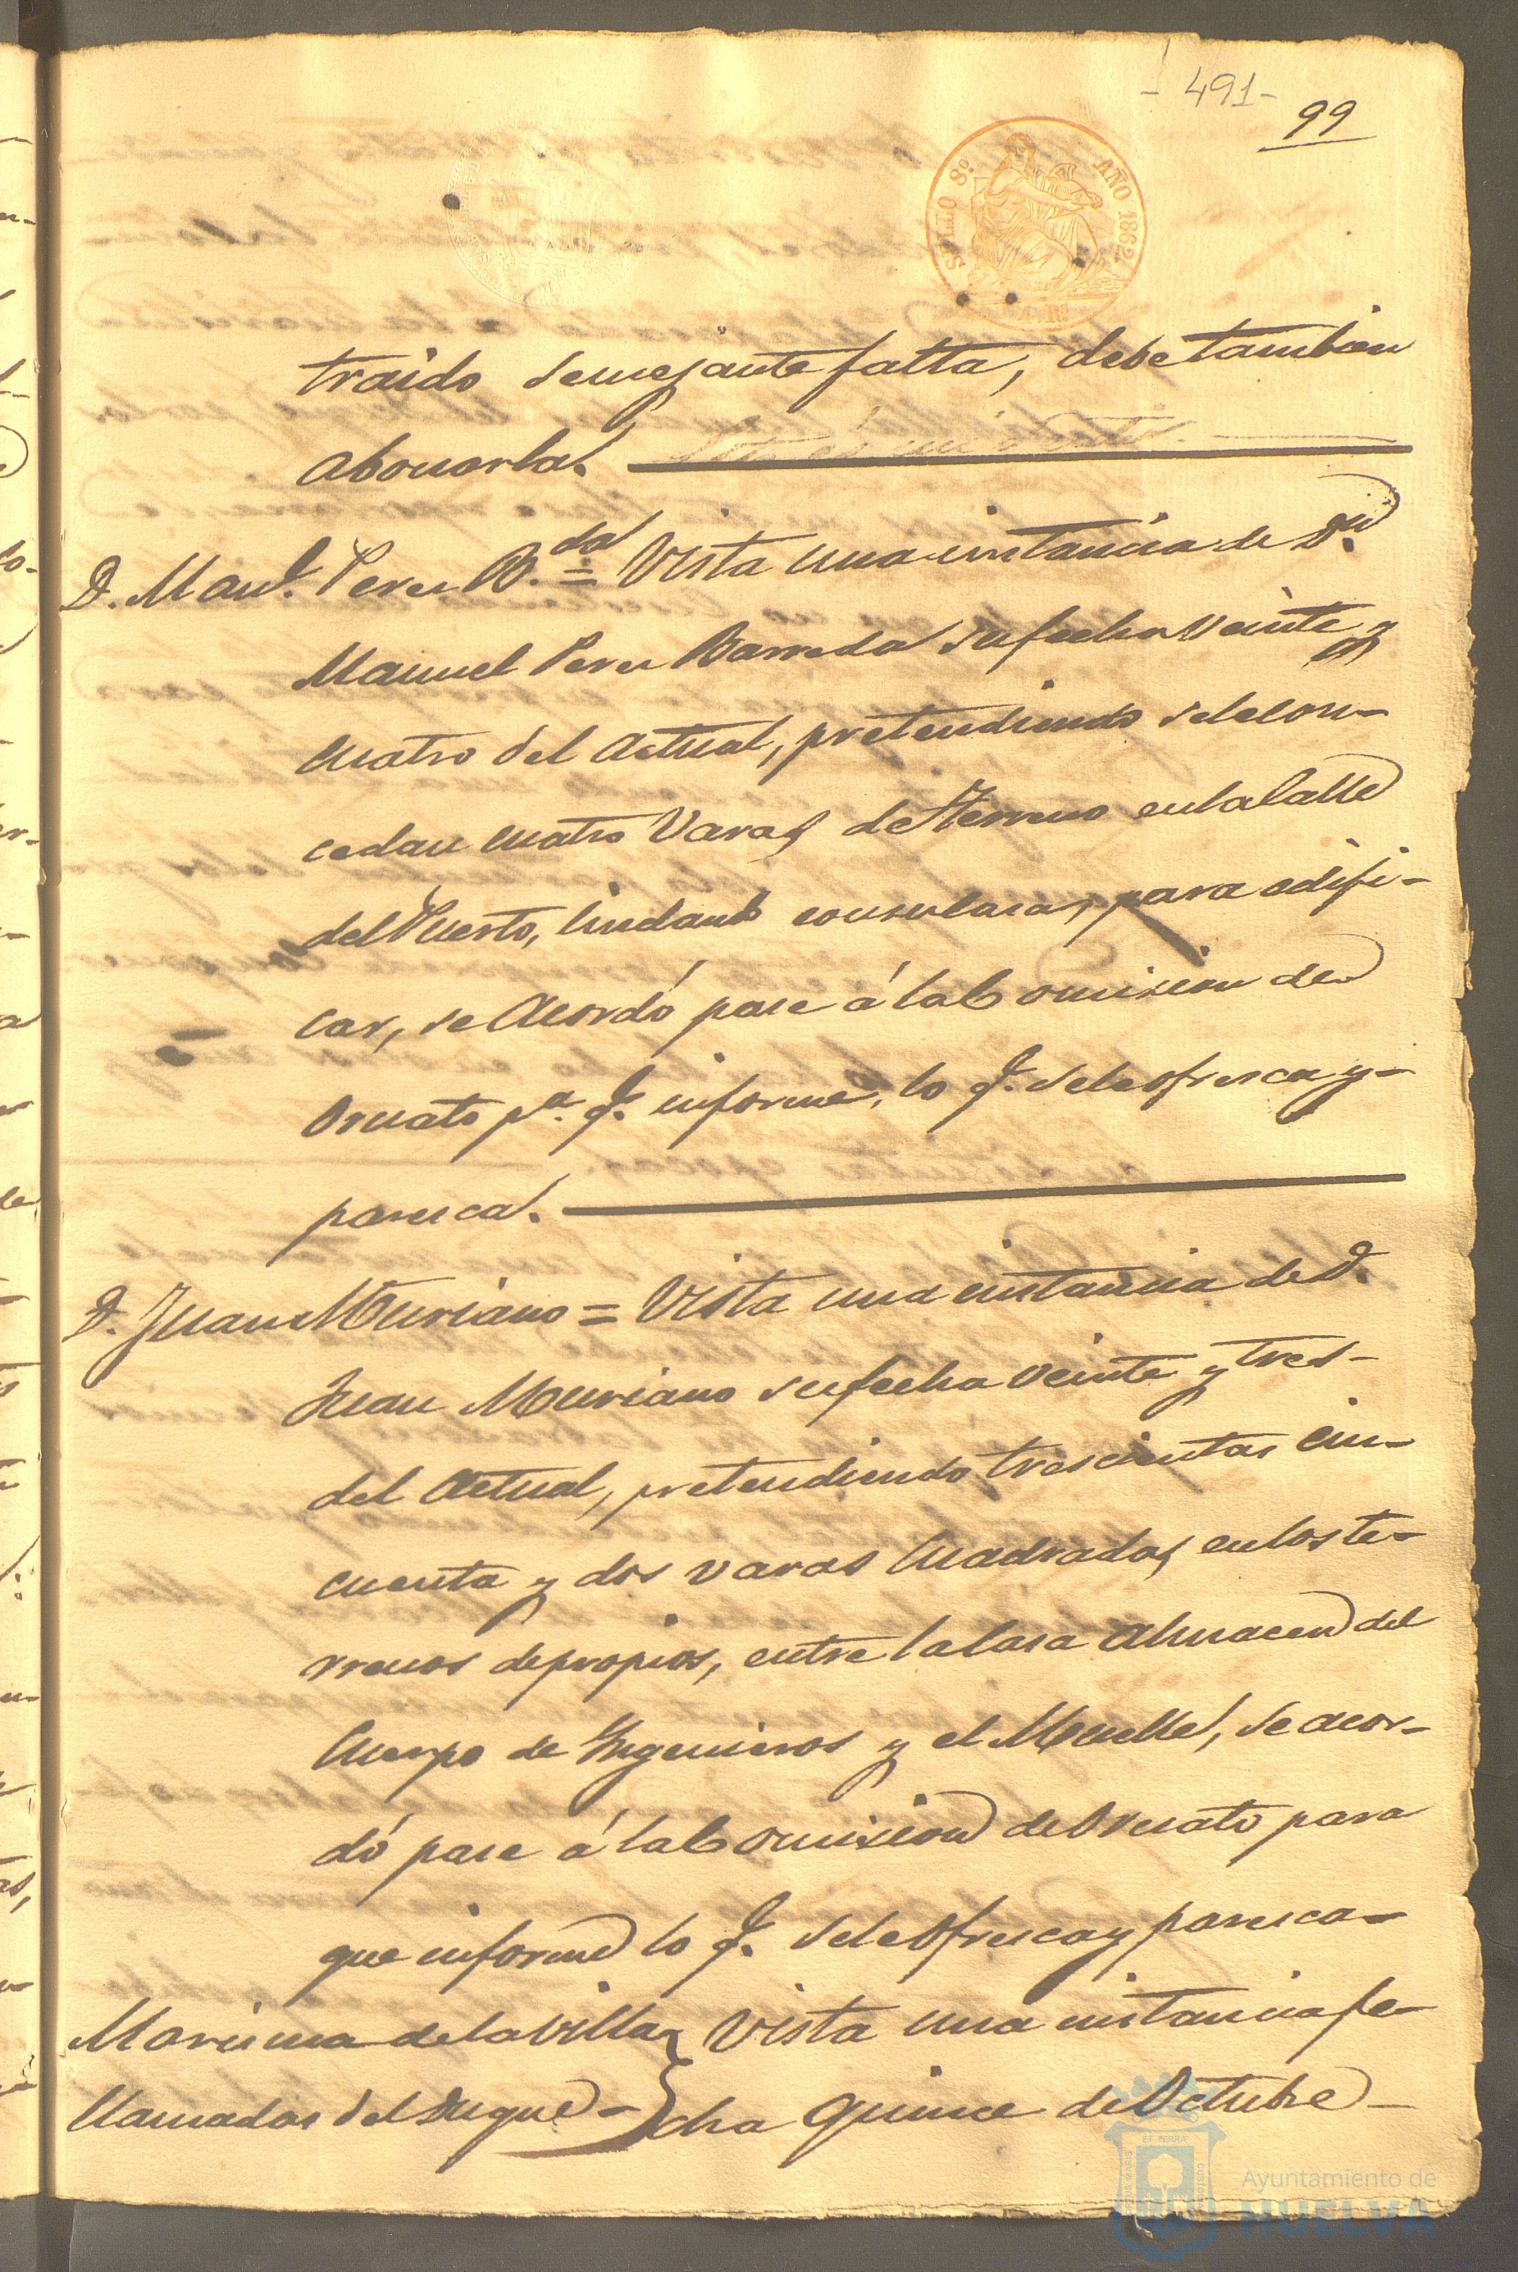 - 491-
99
SELLO 8º AÑO 1862.
traido semejante falta, debe tambien
abonarla.
D. Manl. Perez B.da = Vista una instancia de Dn.
Manuel Perez Barreda su fecha veinte y
cuatro del actual, pretendiendo se le con-
cedan cuatro Varas de Terreno en la Calle
del Puerto, lindante con su casa, para edifi-
car, se Acordó pase á la Comision de
Ornato pa. q. informe, lo q. se le ofresca y-
paresca.
D. Juan Muriano = Vista una instancia de D.
Juan Muriano su fecha veinte y tres-
del Actual, pretendiendo trescientas cin-
cuenta y dos varas Cuadradas en los te-
rrenos de propios, entre la Casa Almacen del
Cuerpo de Ingenieros y el Muelle, se acor-
dó pase á la Comision de Ornato para
que informe lo q. se le Ofresca y paresca-
Marisma de la Villa Vista una instancia fe-
llamadas del Duque - cha Quince de Octubre -
Ayuntamiento de
HUELVA